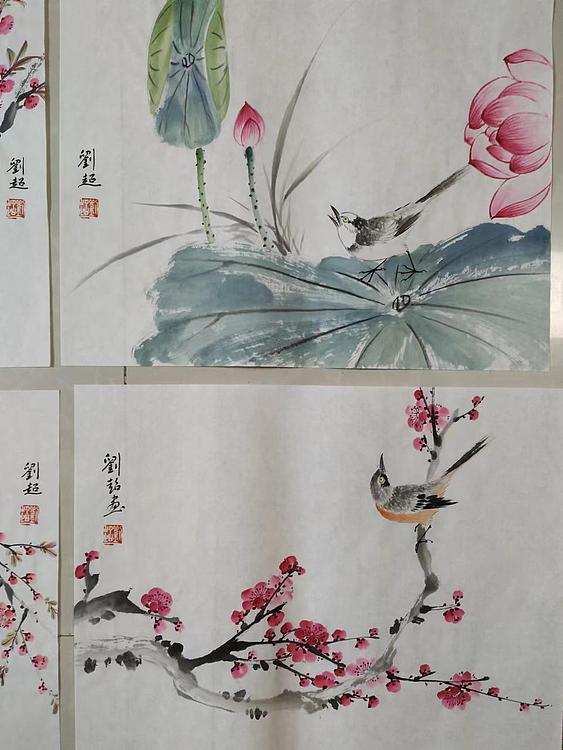 劉超
劉超
劉超
劉超画